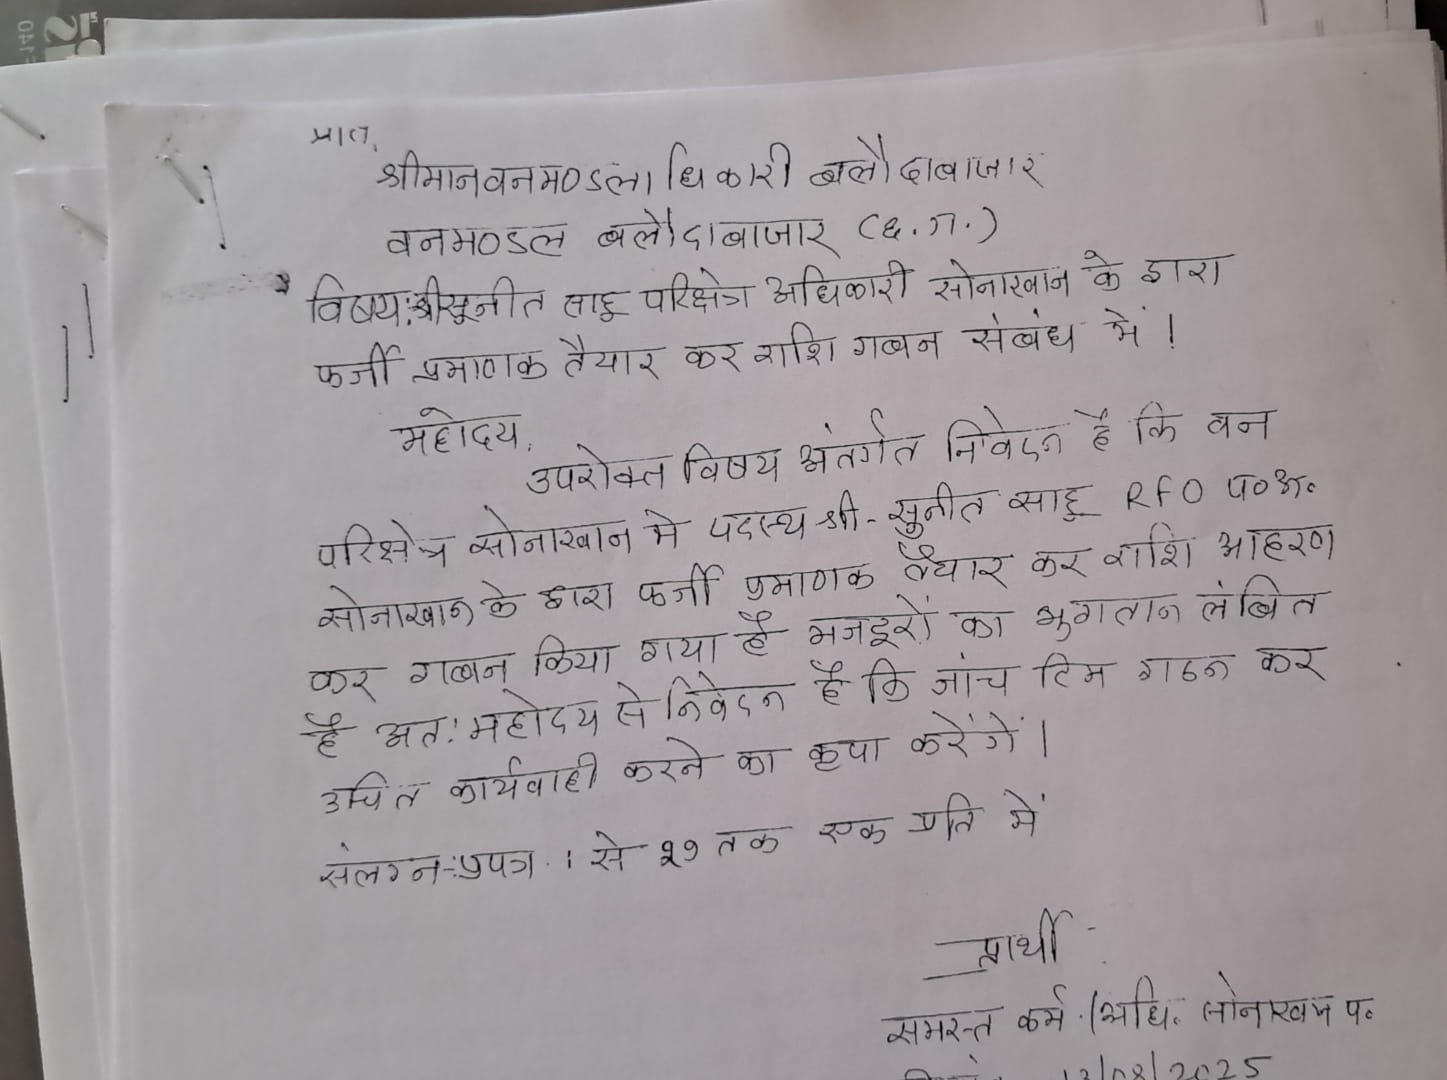 प्रति,
श्रीमान वनमण्डलाधिकारी बलौदाबाजार
वनमण्डल बलौदाबाजार (छ.ग.)
विषय:श्री सुनीत साहू परिक्षेत्र अधिकारी सोनाखान के द्वारा
फर्जी प्रमाणक तैयार कर राशि गबन संबंध में।
महोदय,
उपरोक्त विषय अंतर्गत निवेदन है कि वन
परिक्षेत्र सोनाखान मे पदस्थ श्री-सुनीत साहू RFO प०अ०
सोनाखान के द्वारा फर्जी प्रमाणक तैयार कर राशि आहरण
कर गबन किया गया है मजदूरों का भुगतान लंबित
है अत: महोदय से निवेदन है कि जांच टिम गठन कर
उचित कार्यवाही करने का कृपा करेंगें।
संलग्न-:प्रपत्र. 1 से २७ तक एक प्रति में
प्रार्थी
समस्त कर्म./अधि. सोनाखान प.
2025